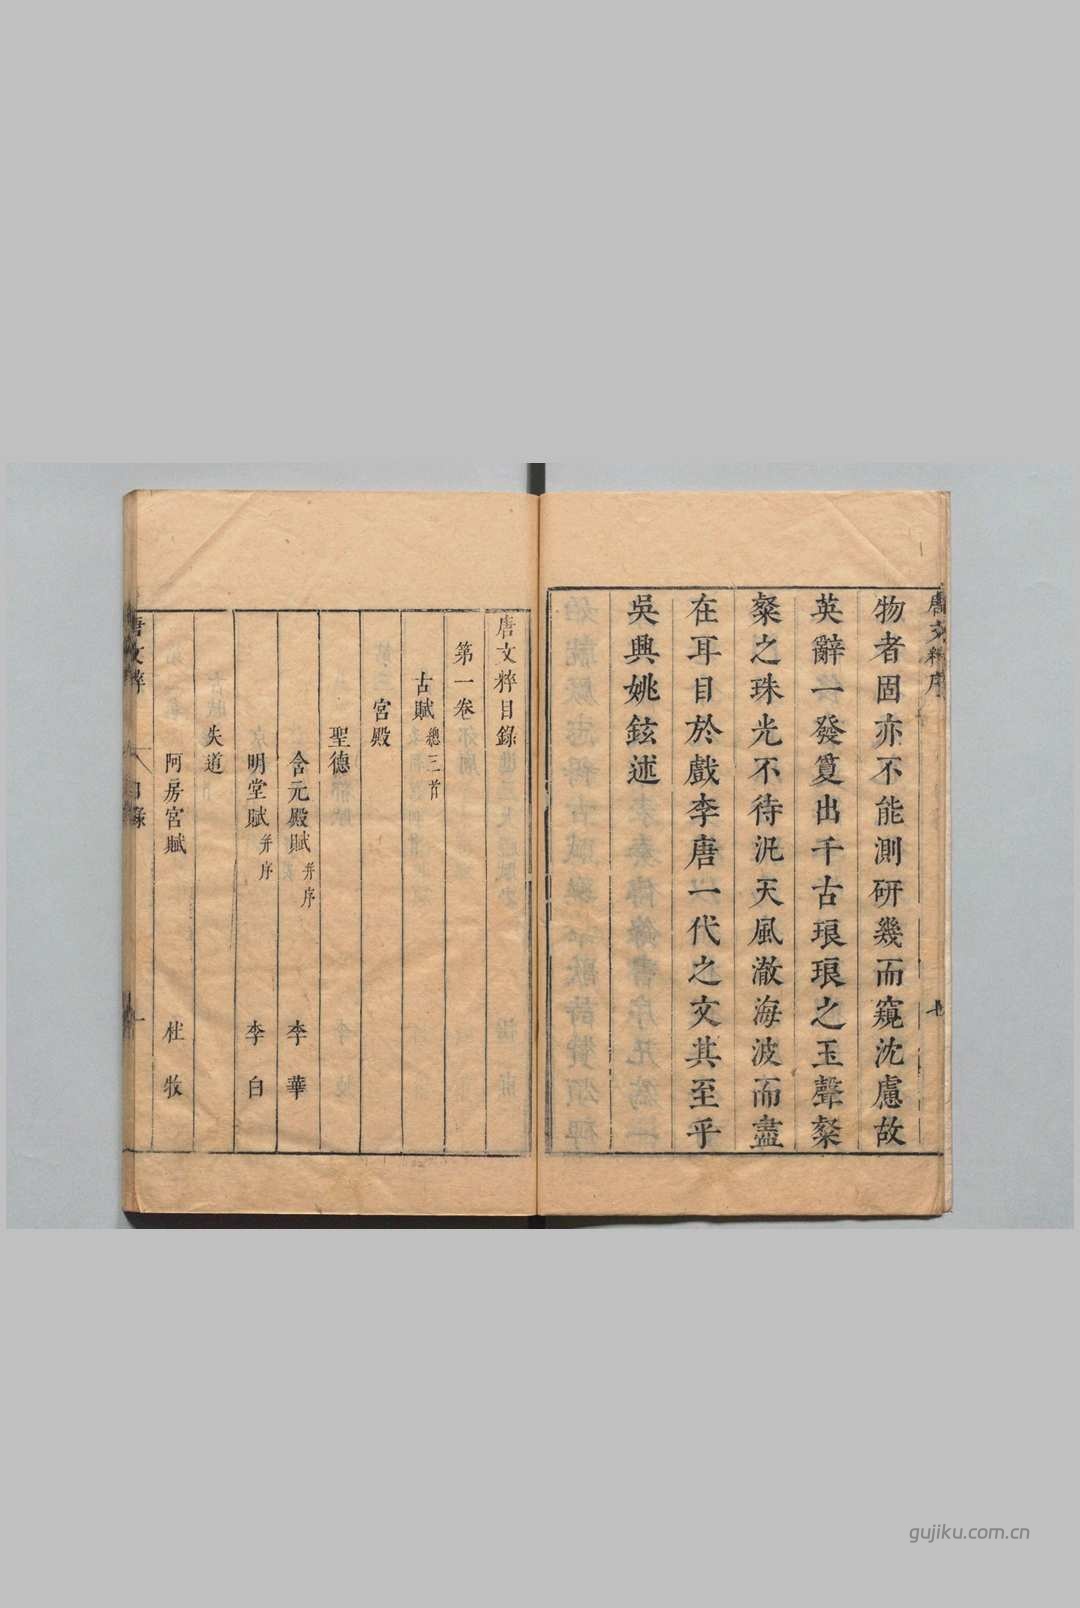 唐文粹序
物者固亦不能測研幾而窺沈慮故
英辭一發敻出千古琅琅之玉聲粲
粲之珠光不待汎天風澈海波而盡
在耳目於戲李唐一代之文其至乎
吳興姚鉉述
唐文粹目錄
第一卷
古賦總三首
宮殿
聖德
含元殿賦并序 李華
明堂賦并序 李白
失道
阿房宮賦 杜牧
唐文粹 目錄 一
gujiku.com.cn